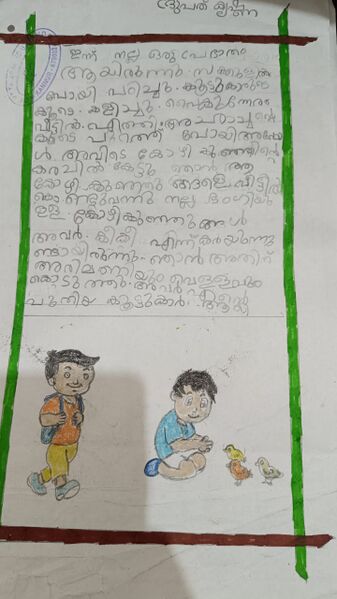 ദ്രുപത് കൃഷ്ണ
ഇന്ന് നല്ല ഒരു പ്രഭാതം
ആയിരുന്നു. സ്ക്കൂളിൽ
പോയി പഠിച്ചു. കൂട്ടുകാരുടെ
കൂടെ കളിച്ചു. വൈകുന്നേരം
വീട്ടിൽ എത്തി. അച്ഛാച്ചന്റെ
കൂടെ പോയി അപ്പോ
ൾ അവിടെ കോഴി കുഞ്ഞിന്റെ
കരച്ചിൽ കേട്ടു ഞാൻ ആ
കോഴി കുഞ്ഞു ങ്ങളെ വീട്ടിൽ
കൊണ്ടുവന്നു നല്ല ഭംഗിയു
ള്ള കോഴിക്കുഞ്ഞുങ്ങൾ
അവർ കീ കീ എന്ന് കരയുന്നു
ണ്ടായിരുന്നു. ഞാൻ അതിന്
അരിമണിയും വെള്ളവും
കൊടുത്തു. അവർ
പുതിയ കൂട്ടുകാർ